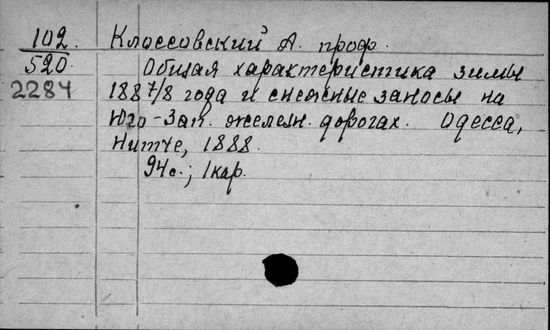 102. Клоссовский А. проф.
520. Общая характеристика зимы
2284 188 7/8 года и снежные заносы на
Юго-Зап. железн. дорогах. Одесса,
Нитче, 1888.
94с.; 1кар.